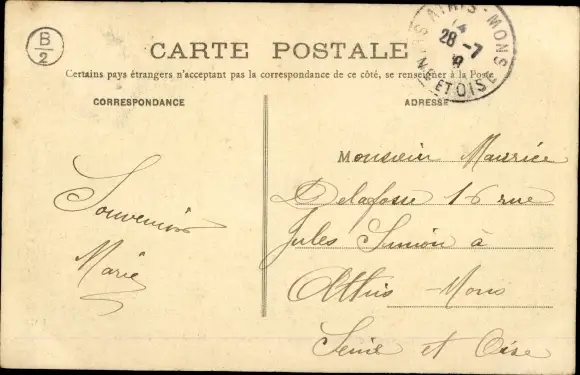 B/2
CARTE POSTALE
Certains pays étrangers n'acceptant pas la correspondance de ce côté, se renseigner à la Poste
CORRESPONDANCE
ADRESSE
ATHIS-MONS
28-7
SEINE ET OISE
Souvenir
Marie
Monsieur Maurice
Delafosse 16 rue
Jules Simon à
Athis-Mons
Seine et Oise